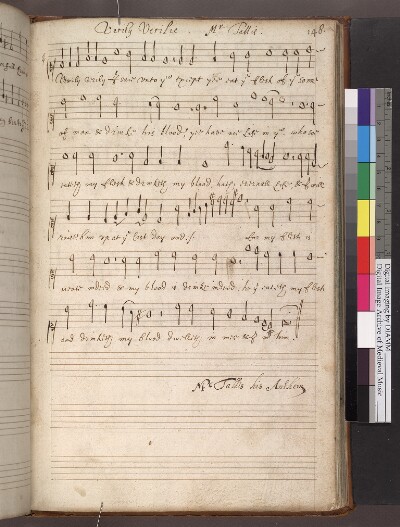 Verily Verilie. Mr Tallis. 148
Verily verily I saie unto you except yee eat ye flesh of ye sonne
of man & drinke his blood, ye have noe life in you whoeso
eateth my flesh & drinketh my bloud, hath eternall life, & I will
raise him up at ye last day and :s: For my flesh is
meate indeed & my bloud is drinke indeed, he yt eateth my flesh
and drinketh my bloud dwelleth in mee & I in him.
Mr Tallis his Anthem
Digital Imaging by DIAMM
Digital Image Archive of Medieval Music